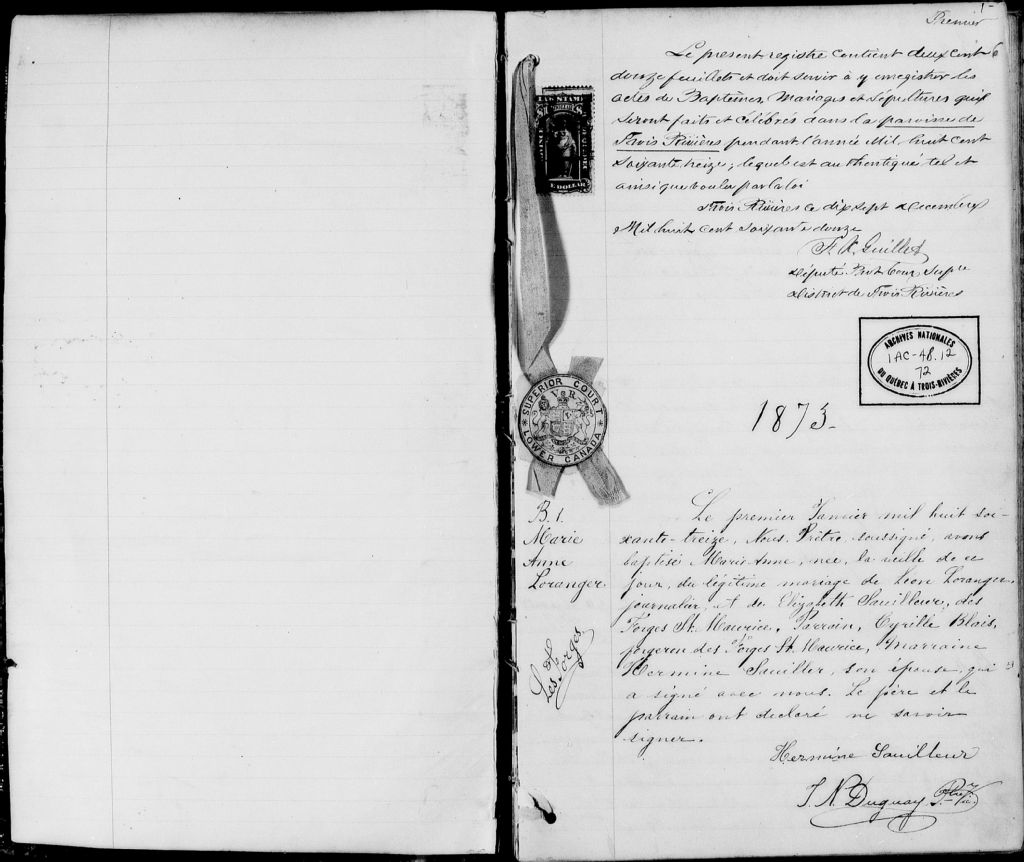 1-
Premier
Le present registre contient deux cent
douze feuillets et doit servir à y enregistrer les
actes de Baptêmes, Mariages et Sépultures qui
seront faits et célébrés dans la paroisse de
Trois Rivières pendant l'année Mil huit cent
soixante treize; lequel est authentiqué tel et
ainsi que voulu par la loi
Trois Rivières ce dix sept Decembre
Mil huit cent soixante douze
Guillet
Député Prot Cour Supre
District de Trois Rivières
LAW STAMP
DOLLAR
ARCHIVES NATIONALES
1AC-48.12
72
DU QUÉBEC À TROIS-RIVIÈRES
SUPERIOR COURT
V R
LOWER CANADA
1873-
B. 1.
Marie
Anne
Loranger
Les Forges
Le premier Janvier mil huit soi-
xante-treize, Nous Prêtre soussigné, avons
baptisé Marie Anne, née, la veille de ce
jour, du légitime mariage de Léon Loranger,
journalier, et de Elizabeth Sauilleur, des
Forges St. Maurice. Parrain, Cyrille Blais,
forgeron des Forges St. Maurice, Marraine
Hermine Sauiller, son épouse, qui
a signé avec nous. Le père et le
parrain ont déclaré ne savoir
signer.
Hermine Sauilleur
S. N. Duguay